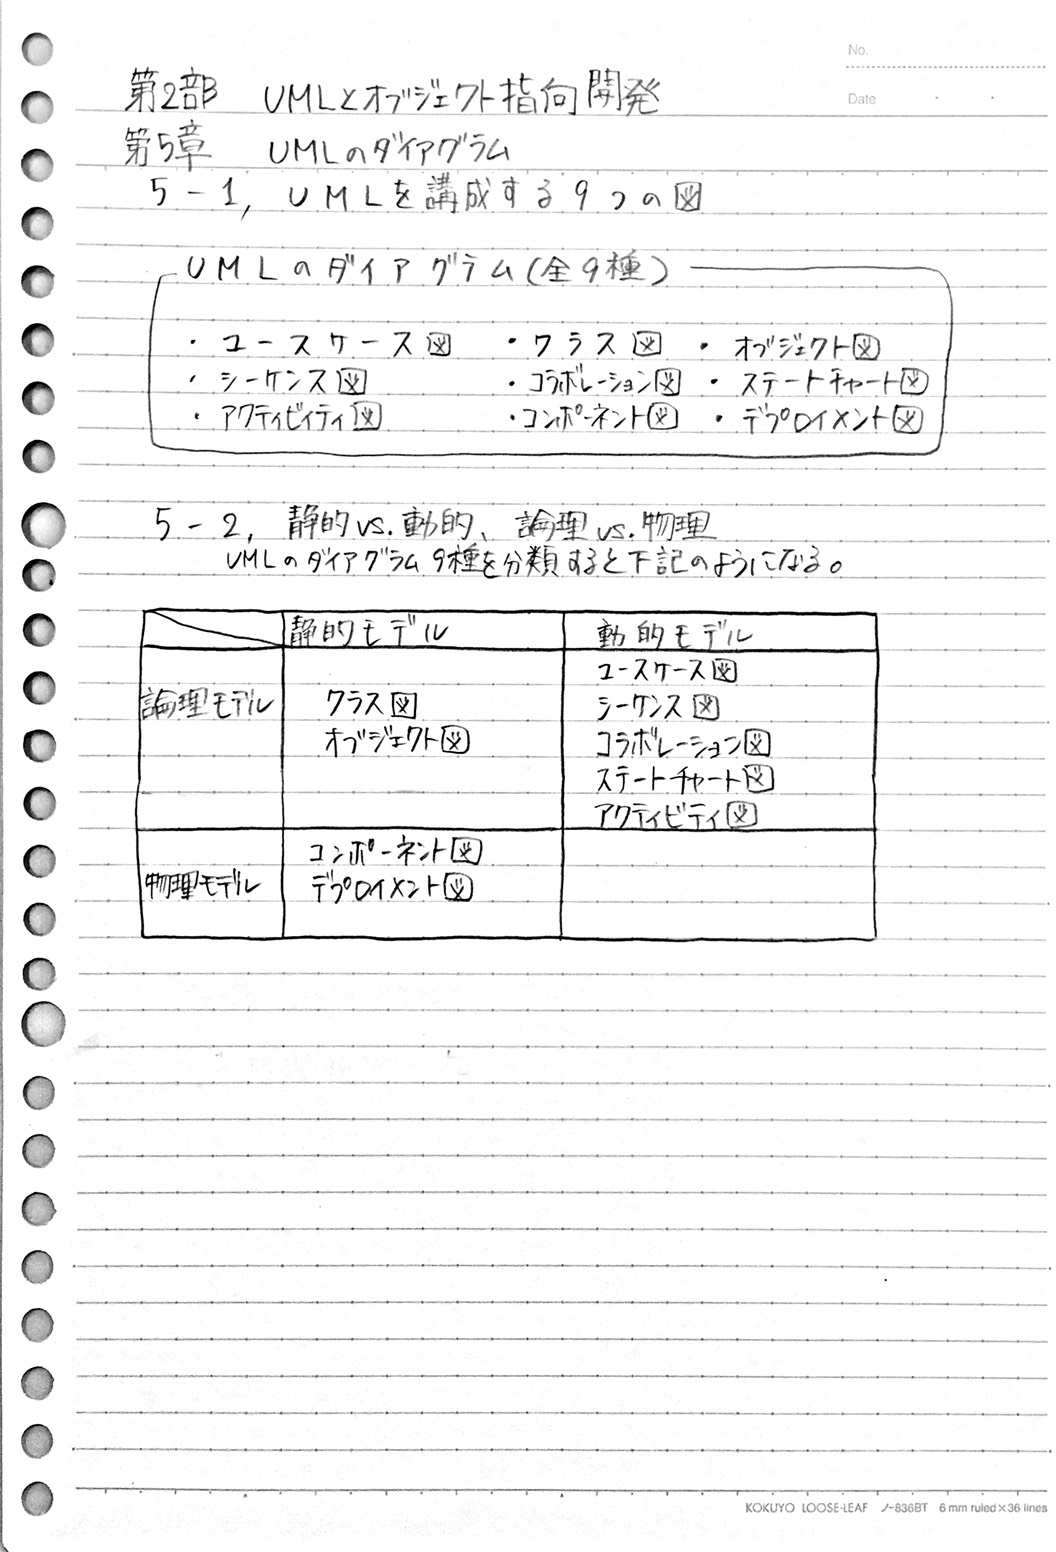 No.
Date
第2部 UMLとオブジェクト指向開発
第5章 UMLのダイアグラム
5-1, UMLを講成する9つの図
UMLのダイアグラム(全9種)
・ユースケース図 ・クラス図 ・オブジェクト図
・シーケンス図 ・コラボレーション図 ・ステートチャート図
・アクティビィティ図 ・コンポーネント図 ・デプロイメント図
5-2, 静的vs.動的、論理vs.物理
UMLのダイアグラム9種を分類すると下記のようになる。
静的モデル 動的モデル
論理モデル
クラス図
オブジェクト図
ユースケース図
シーケンス図
コラボレーション図
ステートチャート図
アクティビティ図
物理モデル
コンポーネント図
デプロイメント図
KOKUYO LOOSE-LEAF ノ-836BT 6 mm ruled×36 lines